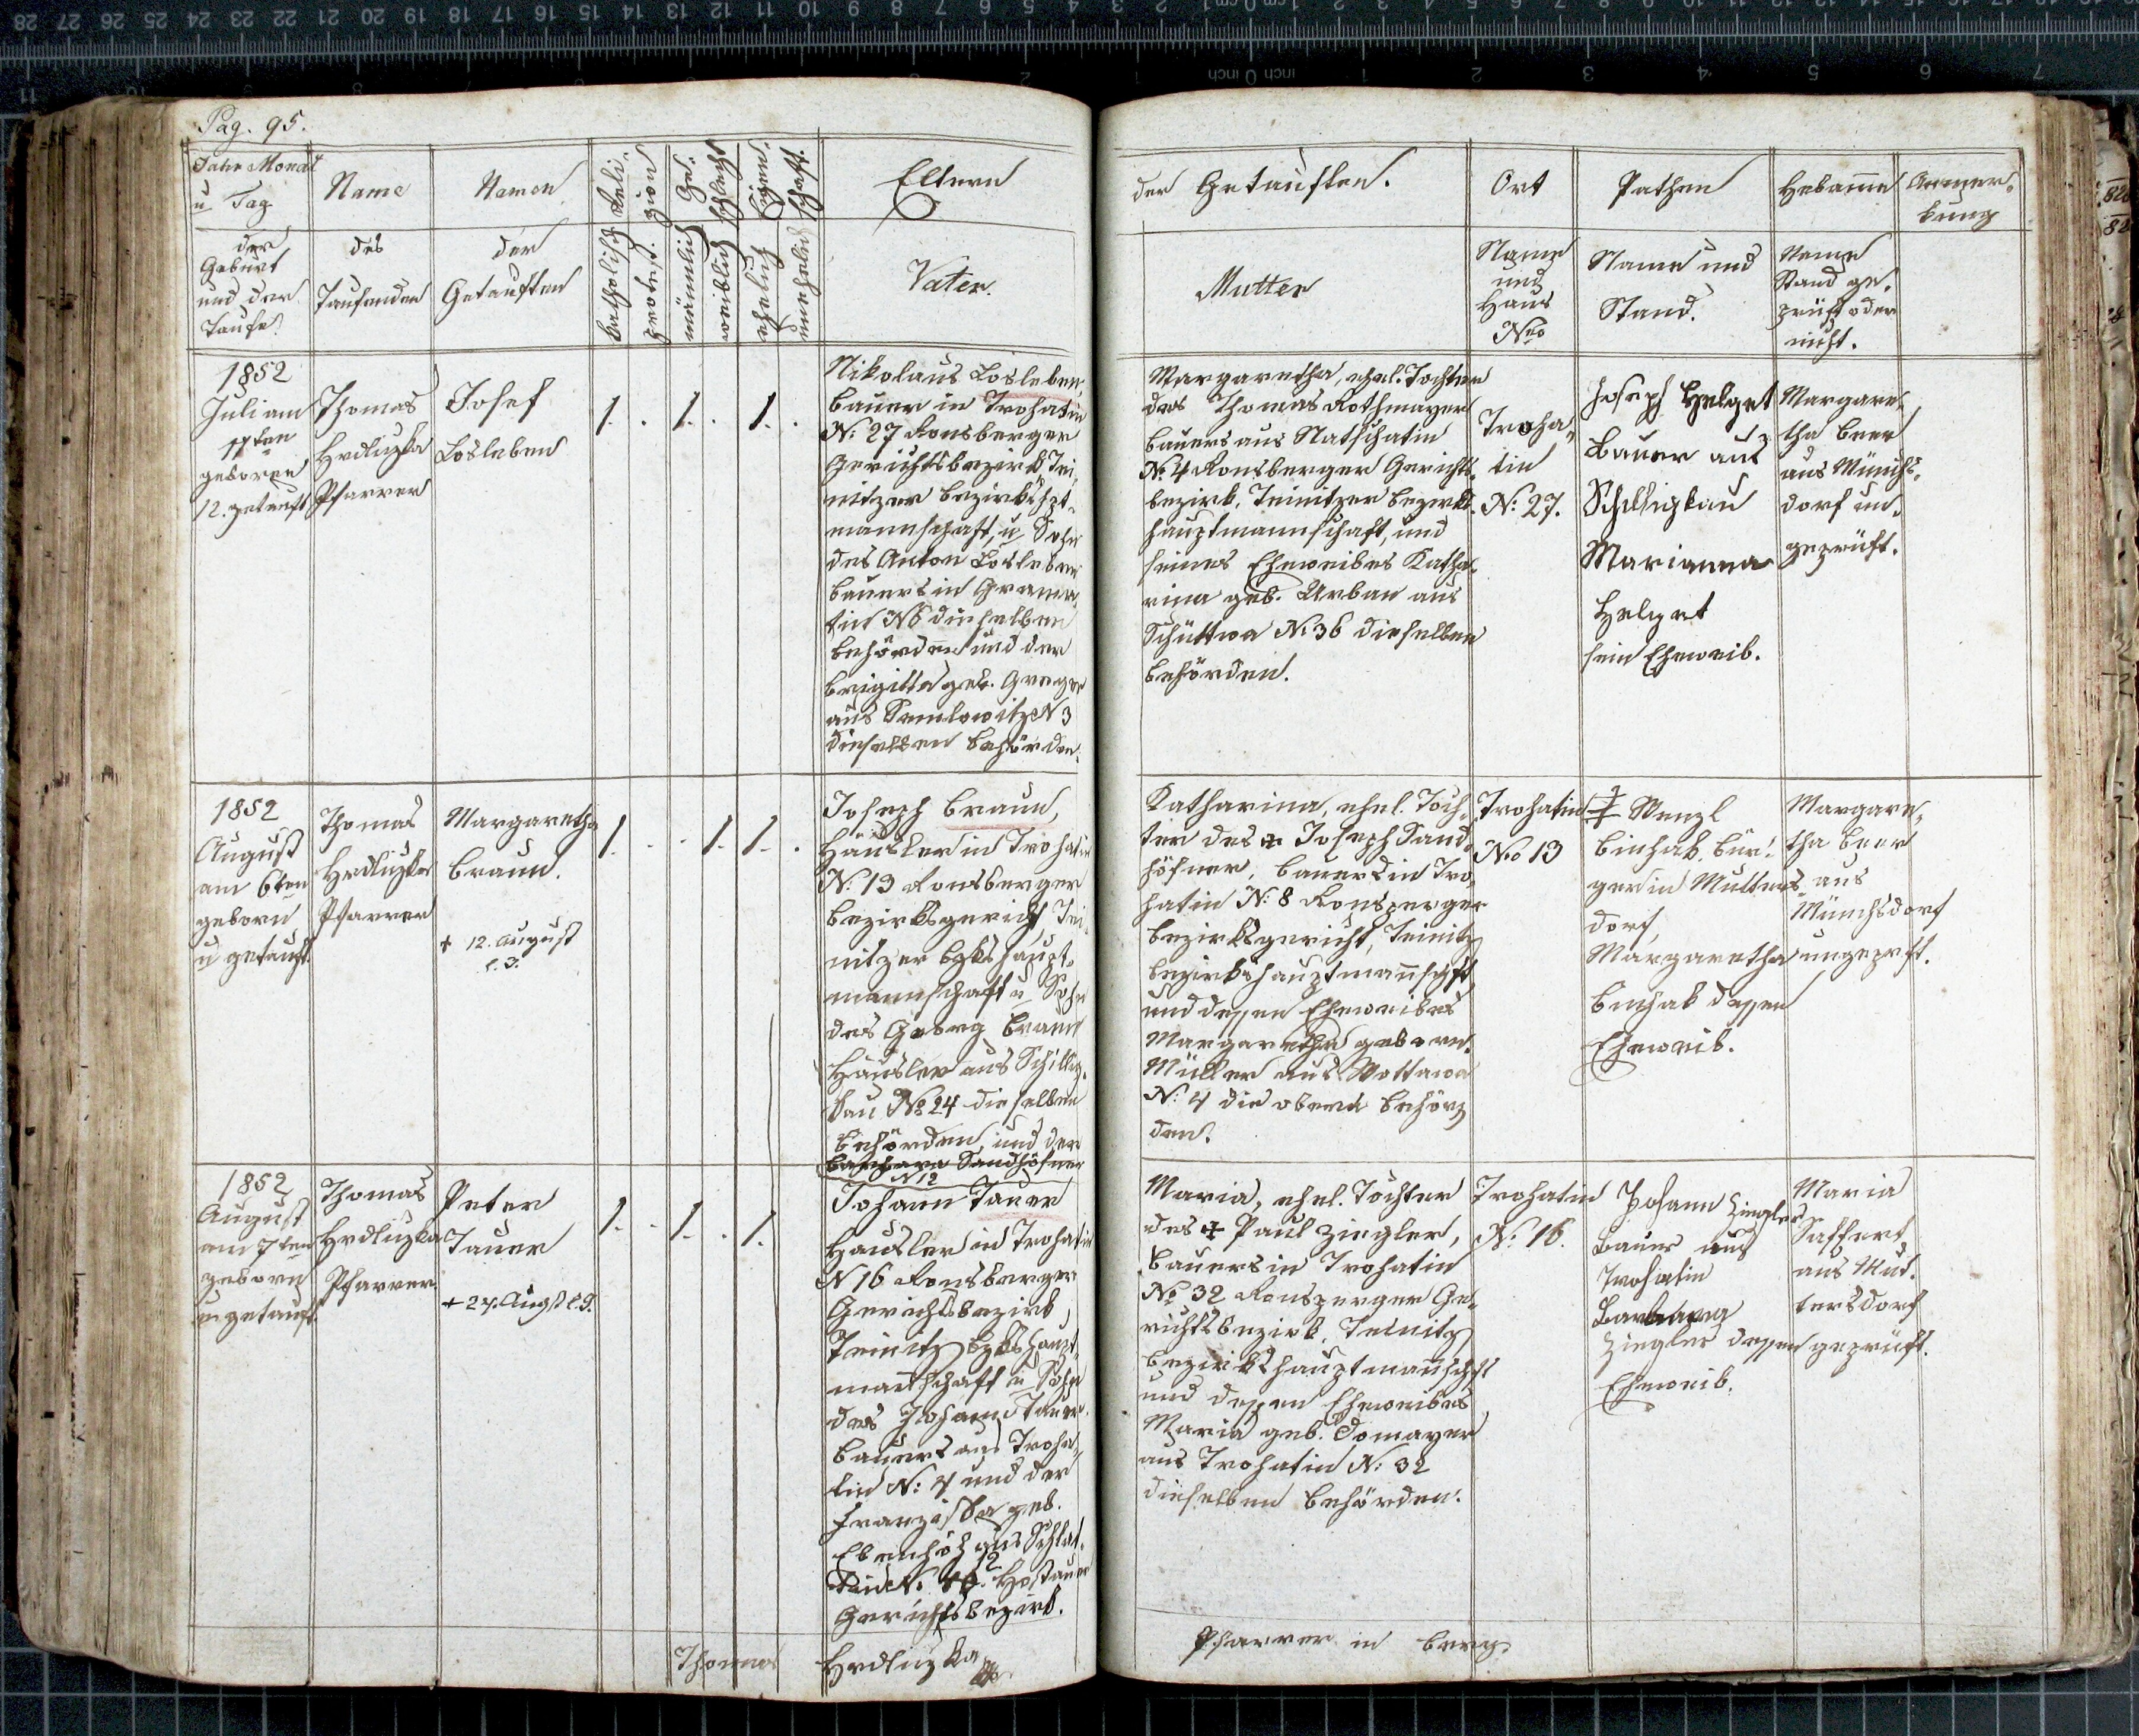 Pag. 95.
Jahr Monat
u Tag
der
Geburt
und der
Taufe.
Name
des
Taufenden
Namen
der
Getauften
Reli-
gion
katholisch
protest.
Ge-
schlecht
männlich
weiblich
Eigen-
schaft.
ehelich
unehelich
Eltern
Vater.
der Getauften.
Mutter
Ort
Name
und
Haus
Nro
Pathen
Name und
Stand.
Hebamme
Name
Stand ge-
prüft oder
nicht.
Anmer-
kung
1852
Juli am
11ten
geboren
12. getauft
Thomas
Hrdliczka
Pfarrer
Josef
Losleben
1. . 1. . 1. .
Nikolaus Losleben
Bauer in Trohatin
N: 27 Ronsberger
Gerichtsbezirk Tei-
nitzer Bezirkshpt-
mannschaft, u Sohn
des Anton Losleben
Bauers in Grama-
tin N6 dieselben
Behörden und der
Brigitta geb. Greger
aus Semlowitz N 3
dieselben Behörden.
Margaretha, ehel. Tochter
des Thomas Rothmayer
Bauers aus Natschatin
N: 4 Ronsberger Gerichts-
bezirk, Teinitzer Bezirks-
hauptmannschaft, und
seines Eheweibes Katha-
rina geb. Urban aus
Schüttwa N: 36 dieselben
Behörden.
Troha-
tin
N: 27.
Joseph Helget
Bauer aus
Schilligkau
Marianna
Helget
sein Eheweib.
Margare-
tha Beer
aus Münchs-
dorf un-
geprüft.
1852
August
am 6ten
geborn
u getauft.
Thomas
Hrdliczka
Pfarrer
Margaretha
Braun.
+ 12. August
l. J.
1. . . 1. 1. .
Joseph Braun,
Häusler in Trohatin
N: 13 Ronsberger
Bezirksgericht, Tei-
nitzer Bzkshaupt-
mannschaft u Sohn
des Georg Braun
Häusler aus Schillig-
kau No 24 dieselben
Behörden, und der
Barbara Sandhöfner
N 12
Katharina, ehel. Toch-
ter des + Joseph Sand-
höfner, Bauers in Tro-
hatin N: 8 Ronsperger
Bezirksgericht, Teinitz
Bezirkshauptmannschft
und dessen Eheweibes
Margaretha geborn.
Müller aus Wottawa
N: 4 die obern Behör-
den.
Trohatin
No 13
Wenzl
Binhak, Bür-
ger in Mutters-
dorf,
Margaretha
Binhak dessen
Eheweib.
Margare-
tha Beer
aus
Münchsdorf
ungeprft.
1852
August
am 7ten
geborn
u getauft
Thomas
Hrdliczka
Pfarrer.
Peter
Tauer
+ 24. Augst l. J.
1. . 1. . 1.
Johann Tauer
Häusler in Trohatin
N 16 Ronsberger
Gerichtsbezirk,
Teinitz Bzkshaupt-
mannschaft u Sohn
des Johann Tauer
Bauers aus Troha-
tin N: 4 und der
Franziska geb.
Ebenhöh aus Schlat-
tin N: 12. Hostauer
Gerichtsbezirk.
Maria, ehel. Tochter
des + Paul Ziegler,
Bauers in Trohatin
No 32 Ronsperger Ge-
richtsbezirk, Teinitz
Bezirkshauptmannschft
und dessen Eheweibes
Maria geb. Domayer
aus Trohatin N: 32
dieselben Behörden.
Trohatin
N: 16.
Johann Ziegler
Bauer aus
Trohatin
Barbara
Ziegler dessen
Eheweib.
Maria
Saffert
aus Mut-
tersdorf
geprüft.
Thomas Hrdliczka
Pfarrer in Berg